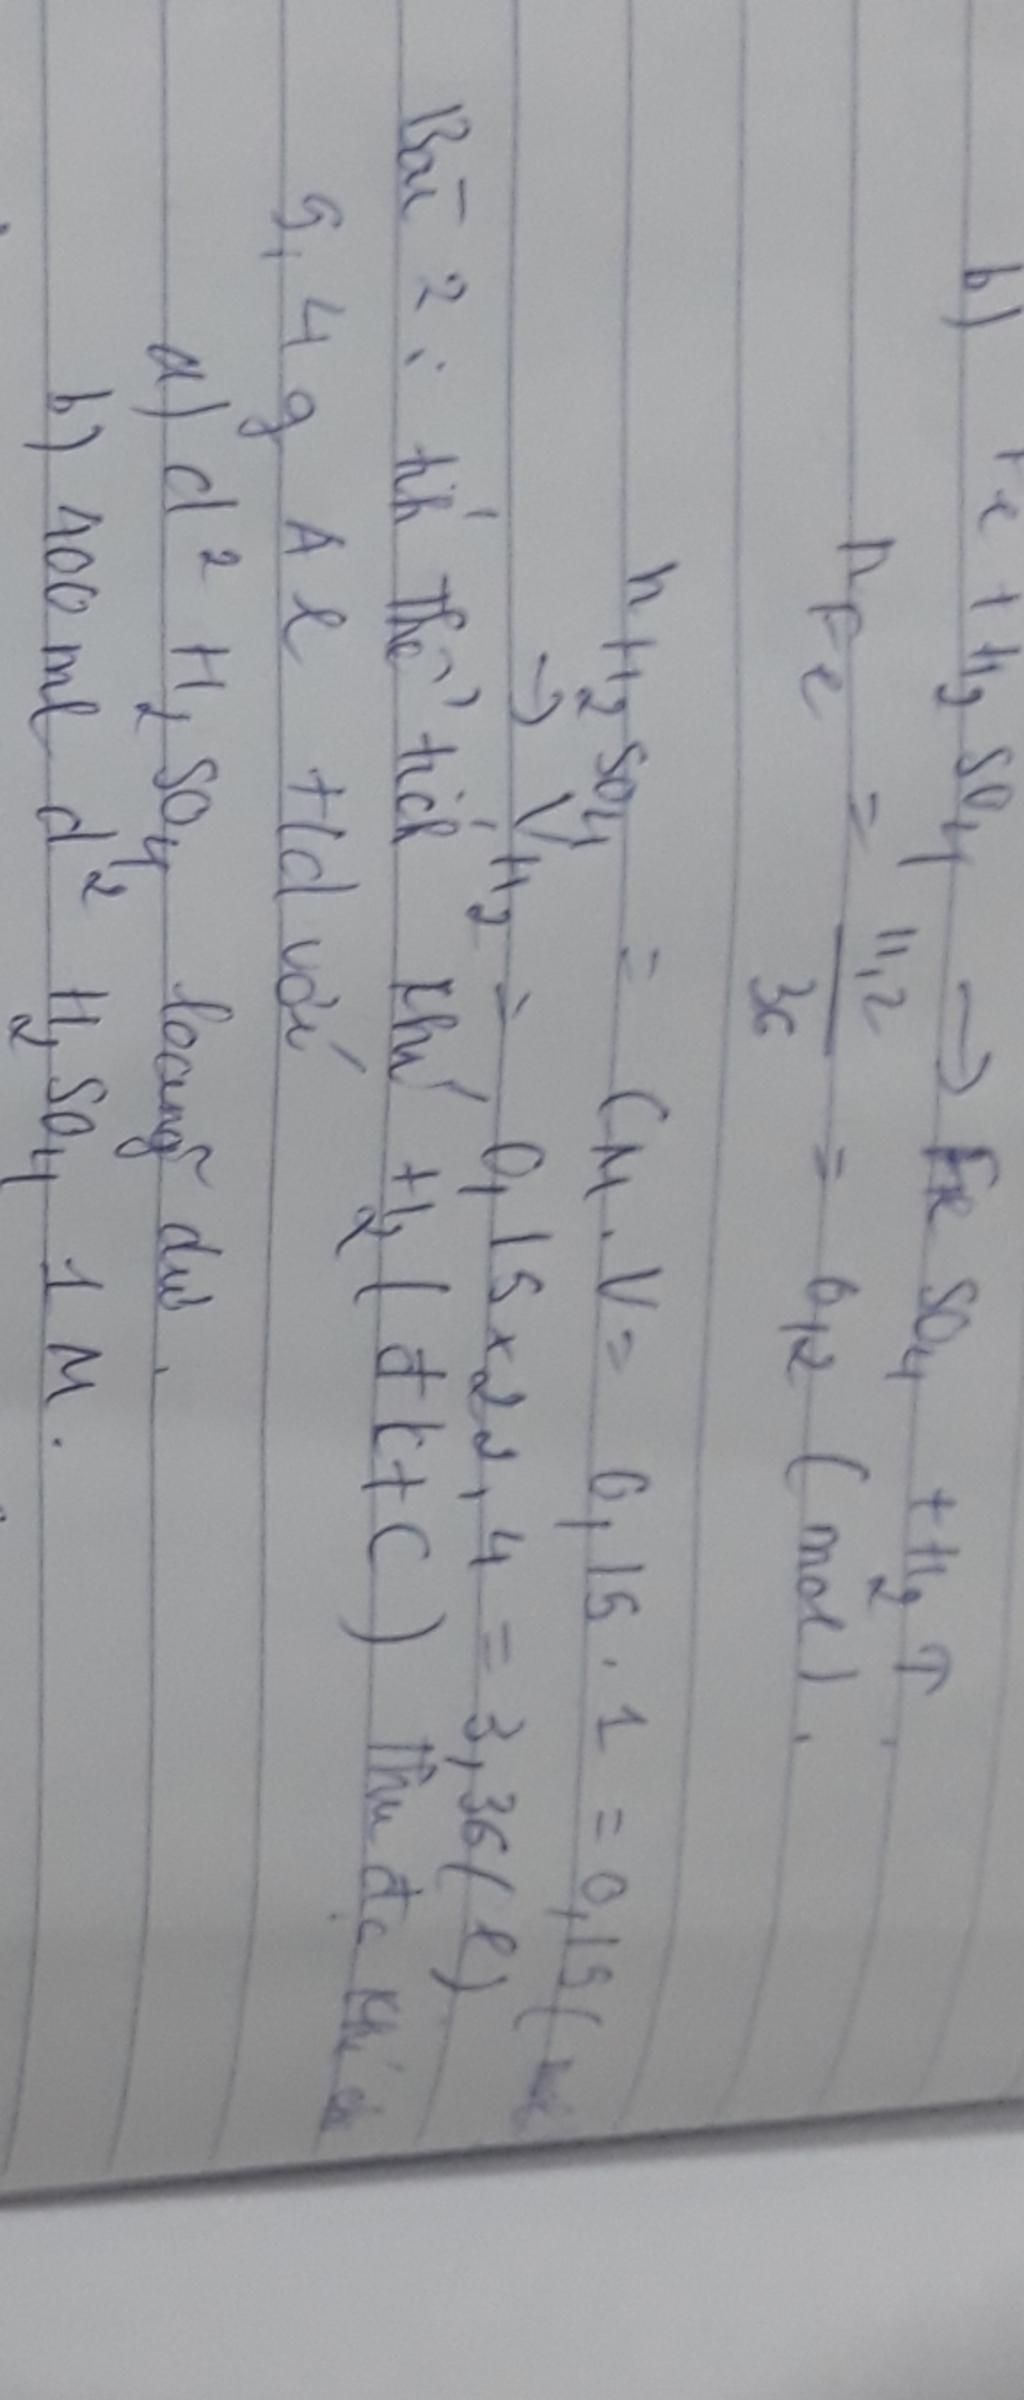 b) Fe + H₂SO₄ → FeSO₄ + H₂↑.
n Fe = 11,2 / 56 = 0,2 (mol).
n H₂SO₄ = CM.V = 0,15 . 1 = 0,15 (mol
→ V H₂ = 0,15 x 22,4 = 3,36 (l)
Bài 2 : tính thể tích khí H₂ (đktc) Thu đc khi cho
5,4g Al t/d với
a) d² H₂SO₄ loãng dư.
b) 100ml d² H₂SO₄ 1M.